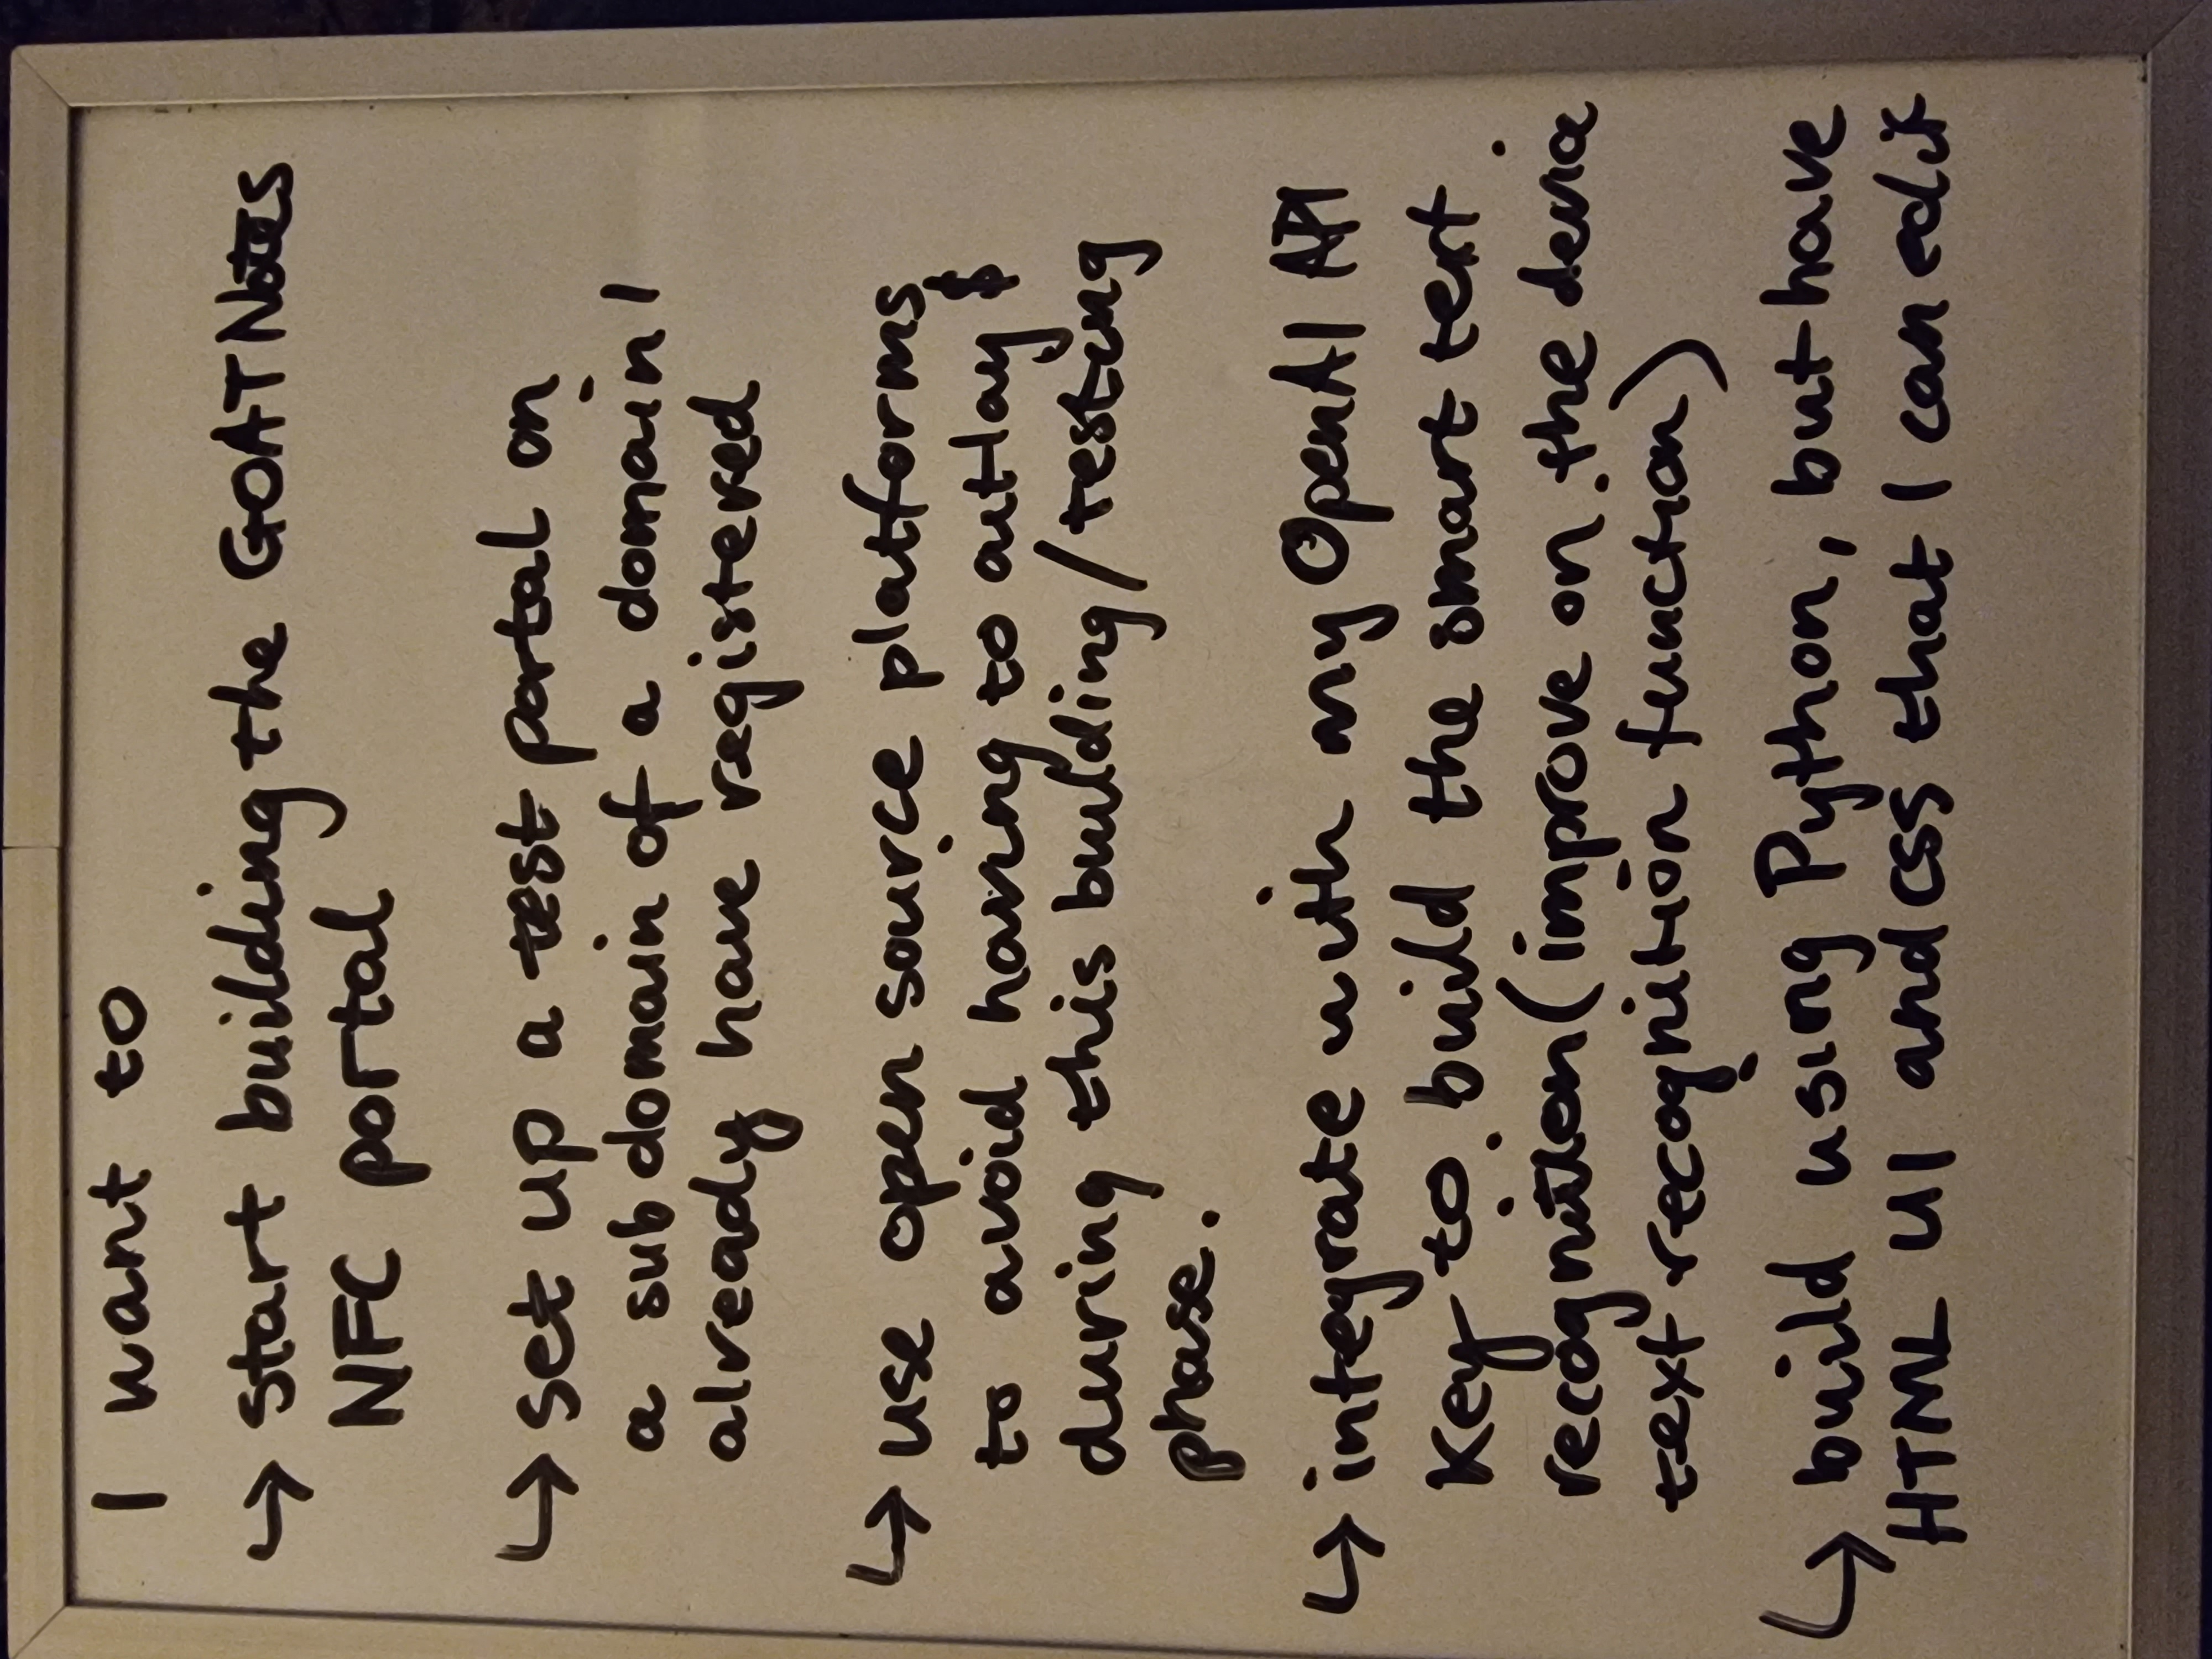 I want to
↳ start building the GOATNotes
NFC portal
↳ set up a test portal on
a subdomain of a domain I
already have registered
↳ use open source platforms
to avoid having to outlay $
during this building/testing
phase.
↳ integrate with my OpenAI API
key to build the smart text
recognition (improve on the device
text recognition function)
↳ build using Python, but have
HTML UI and CSS that I can edit